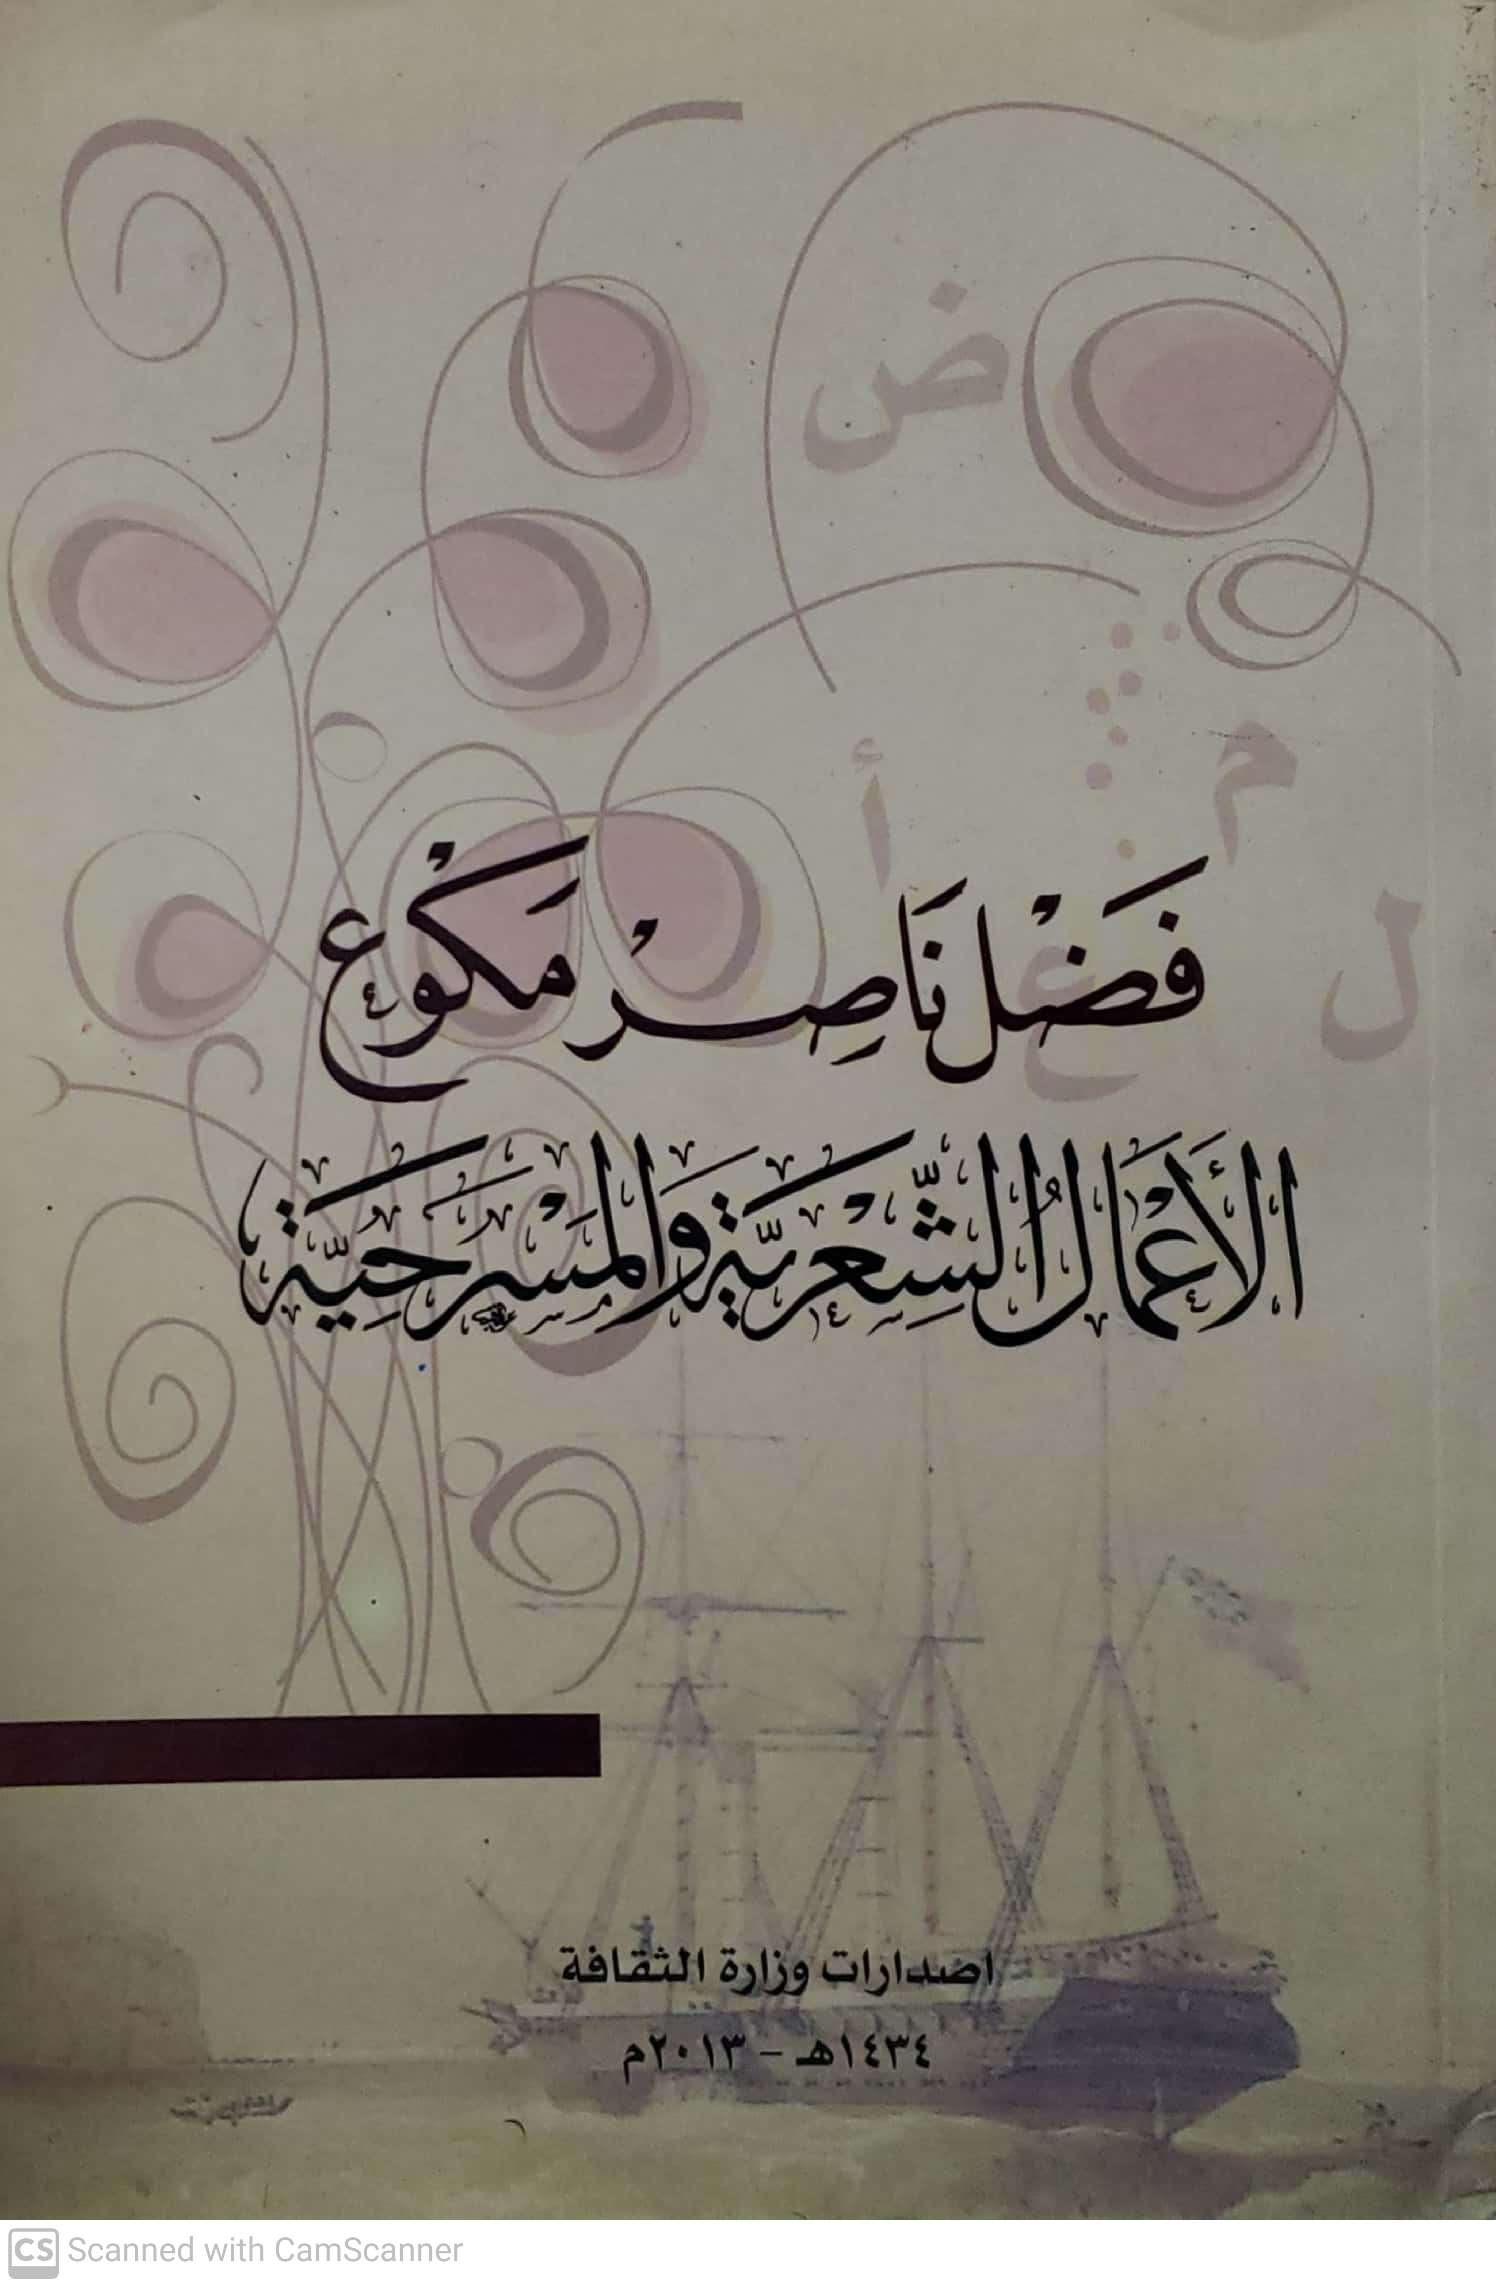 ض
م
أ
ل
ع
فَضْل نَاصِرْ مَكْوع
الأَعْمَالُ الشِّعْرِيَّة وَالمَسْرَحِيَّة
اصدارات وزارة الثقافة
١٤٣٤هـ - ٢٠١٣م
CS Scanned with CamScanner